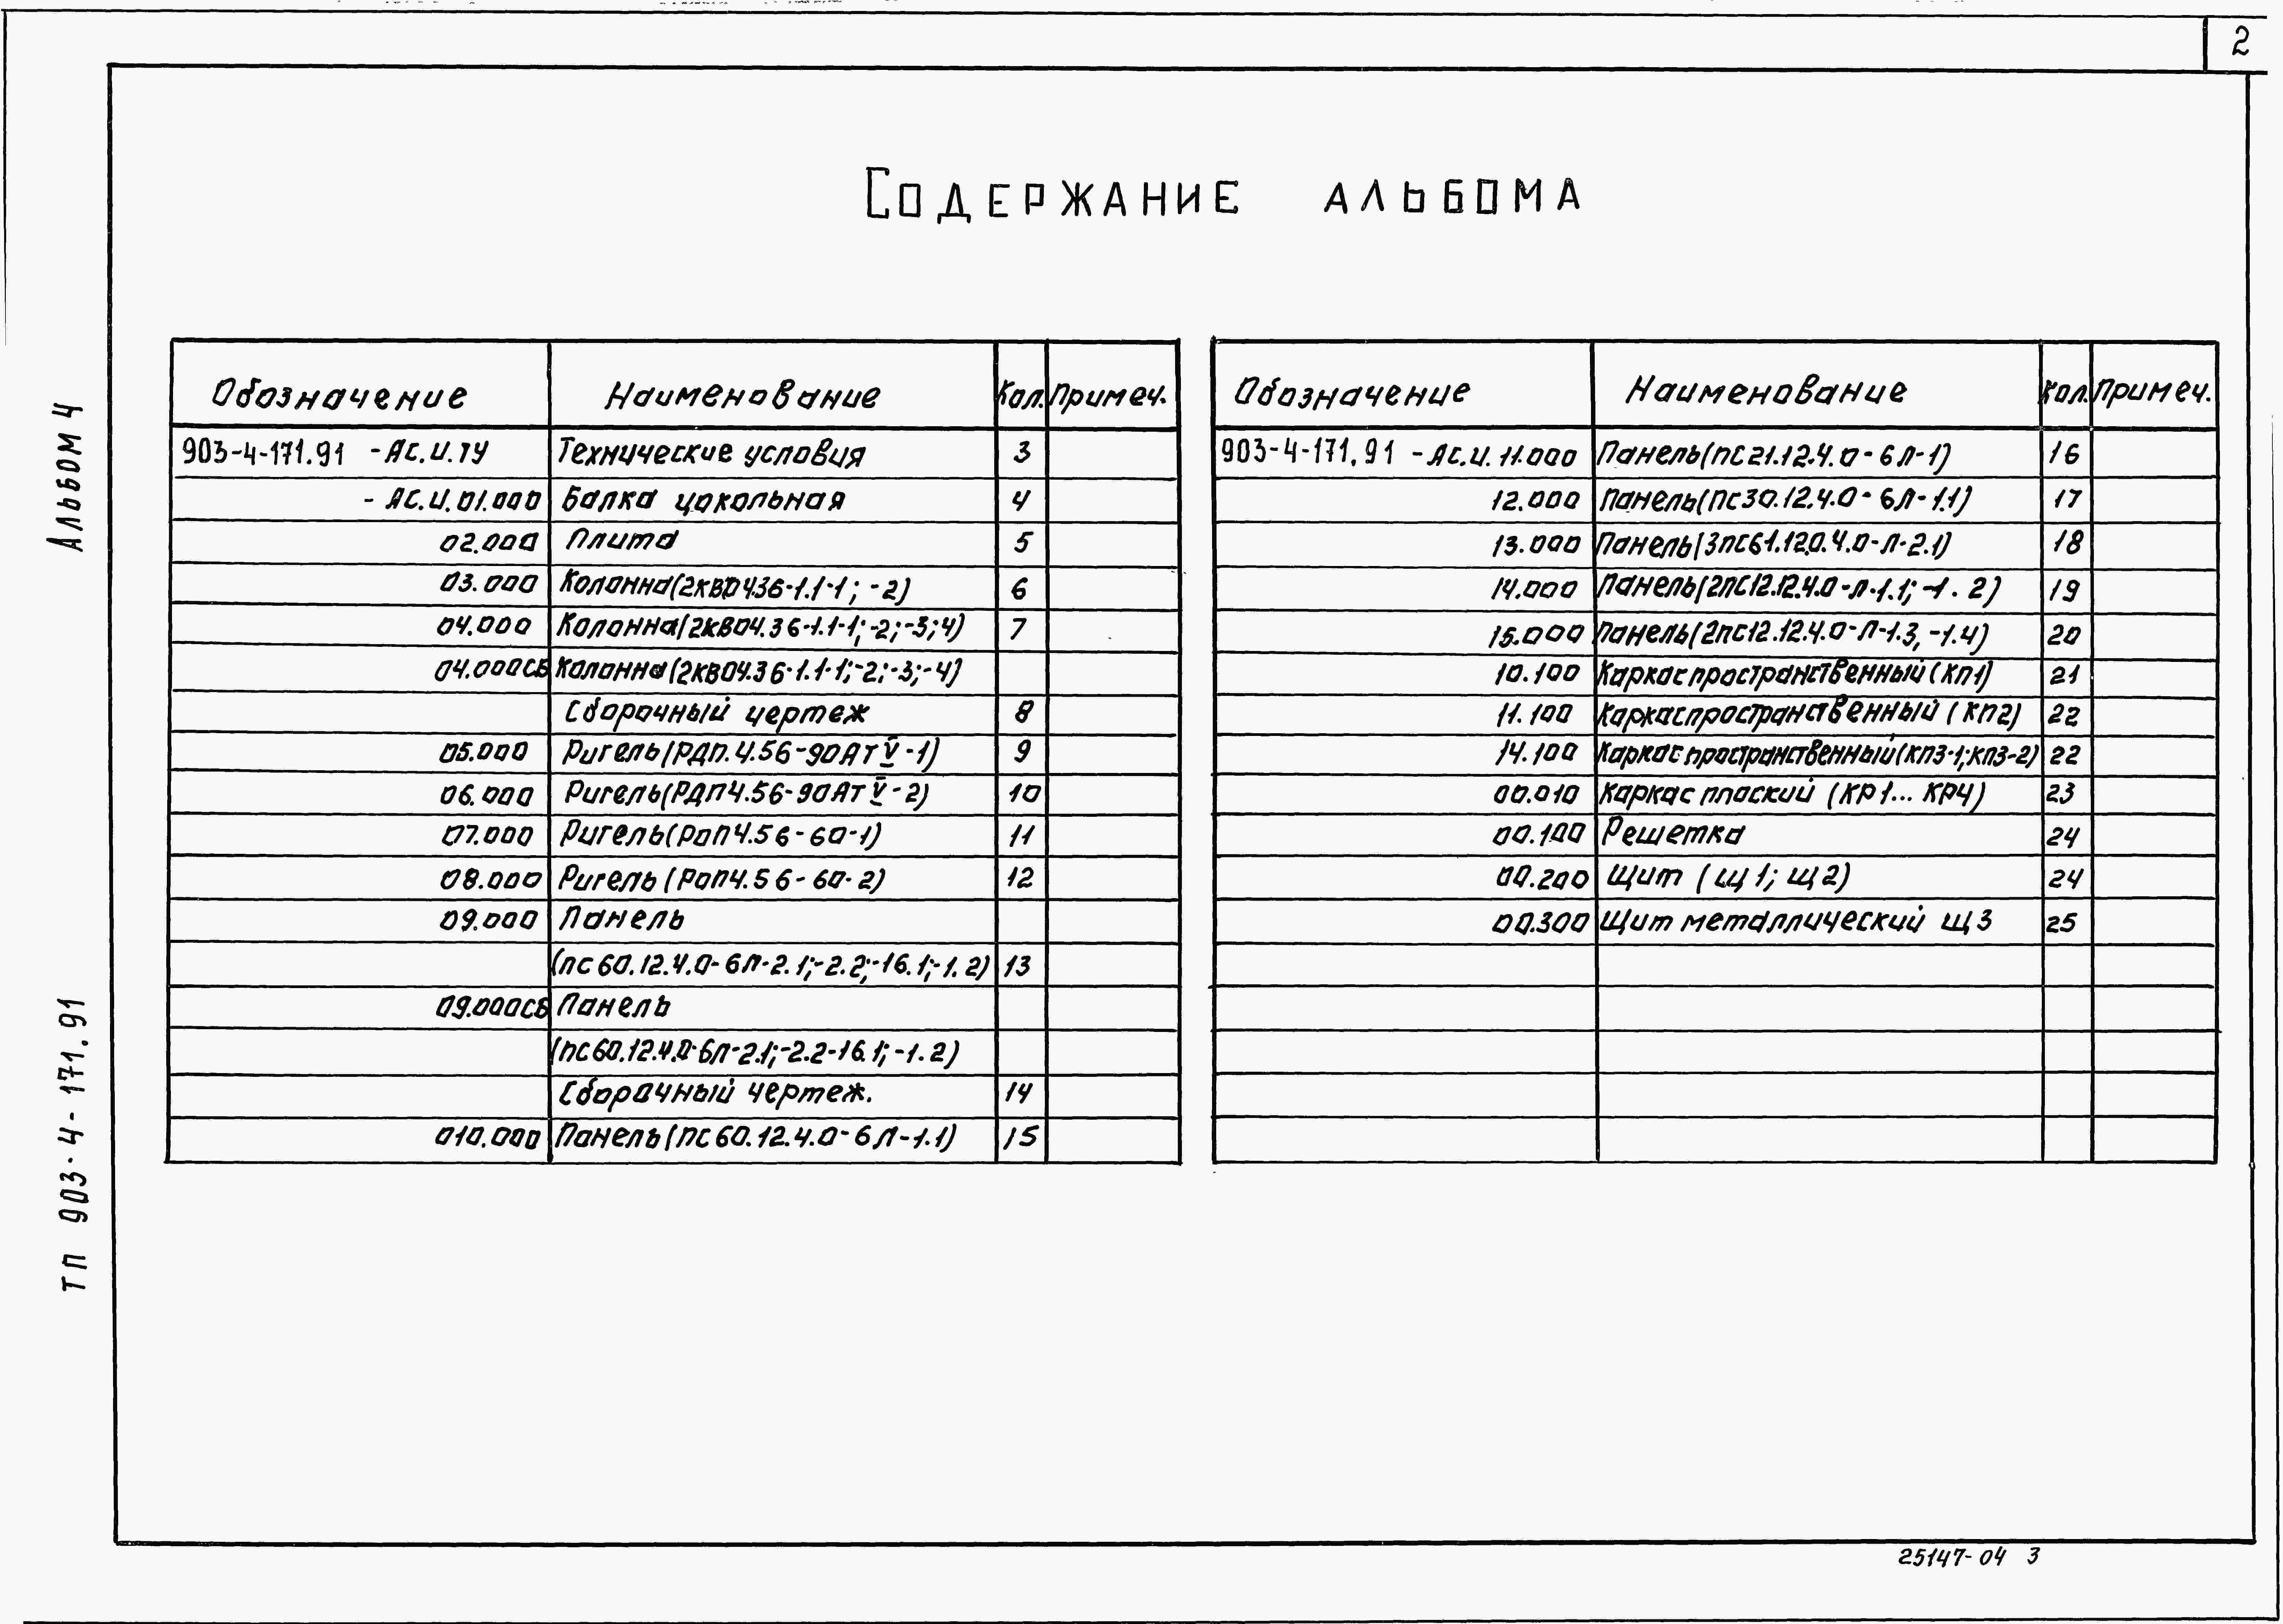 2
Содержание альбома
Альбом 4
ТП 903-4-171.91
Обозначение Наименование Кол. Примеч.
903-4-171.91 -АС.И.ТУ Технические условия 3
- АС.И.01.000 Балка цокольная 4
02.000 Плита 5
03.000 Колонна(2КВО4.36-1.1-1; -2) 6
04.000 Колонна(2КВО4.36-1.1-1;-2;-3;4) 7
04.000СБ Колонна(2КВО4.36-1.1-1;-2;-3;-4)
Сборочный чертеж 8
05.000 Ригель(РДП.4.56-90АТ V-1) 9
06.000 Ригель(РДП4.56-90АТ V-2) 10
07.000 Ригель(РОП4.56-60-1) 11
08.000 Ригель (РОП4.56-60-2) 12
09.000 Панель
(ПС60.12.4.0-6Л-2.1;-2.2;-16.1;-1.2) 13
09.000СБ Панель
(ПС60.12.4.0-6Л-2.1;-2.2-16.1;-1.2)
Сборочный чертеж. 14
010.000 Панель(ПС60.12.4.0-6Л-1.1) 15
Обозначение Наименование Кол. Примеч.
903-4-171.91 -АС.И.11.000 Панель(ПС21.12.4.0-6Л-1) 16
12.000 Панель(ПС30.12.4.0-6Л-1.1) 17
13.000 Панель(3ПС61.120.4.0-Л-2.1) 18
14.000 Панель(2ПС12.12.4.0-Л-1.1; -1.2) 19
15.000 Панель(2ПС12.12.4.0-Л-1.3, -1.4) 20
10.100 Каркас пространственный(КП1) 21
11.100 Каркас пространственный (КП2) 22
14.100 Каркас пространственный(КП3-1;КП3-2) 22
00.010 Каркас плоский (КР1... КР4) 23
00.100 Решетка 24
00.200 Щит (Щ1; Щ2) 24
00.300 Щит металлический Щ3 25
25147-04 3